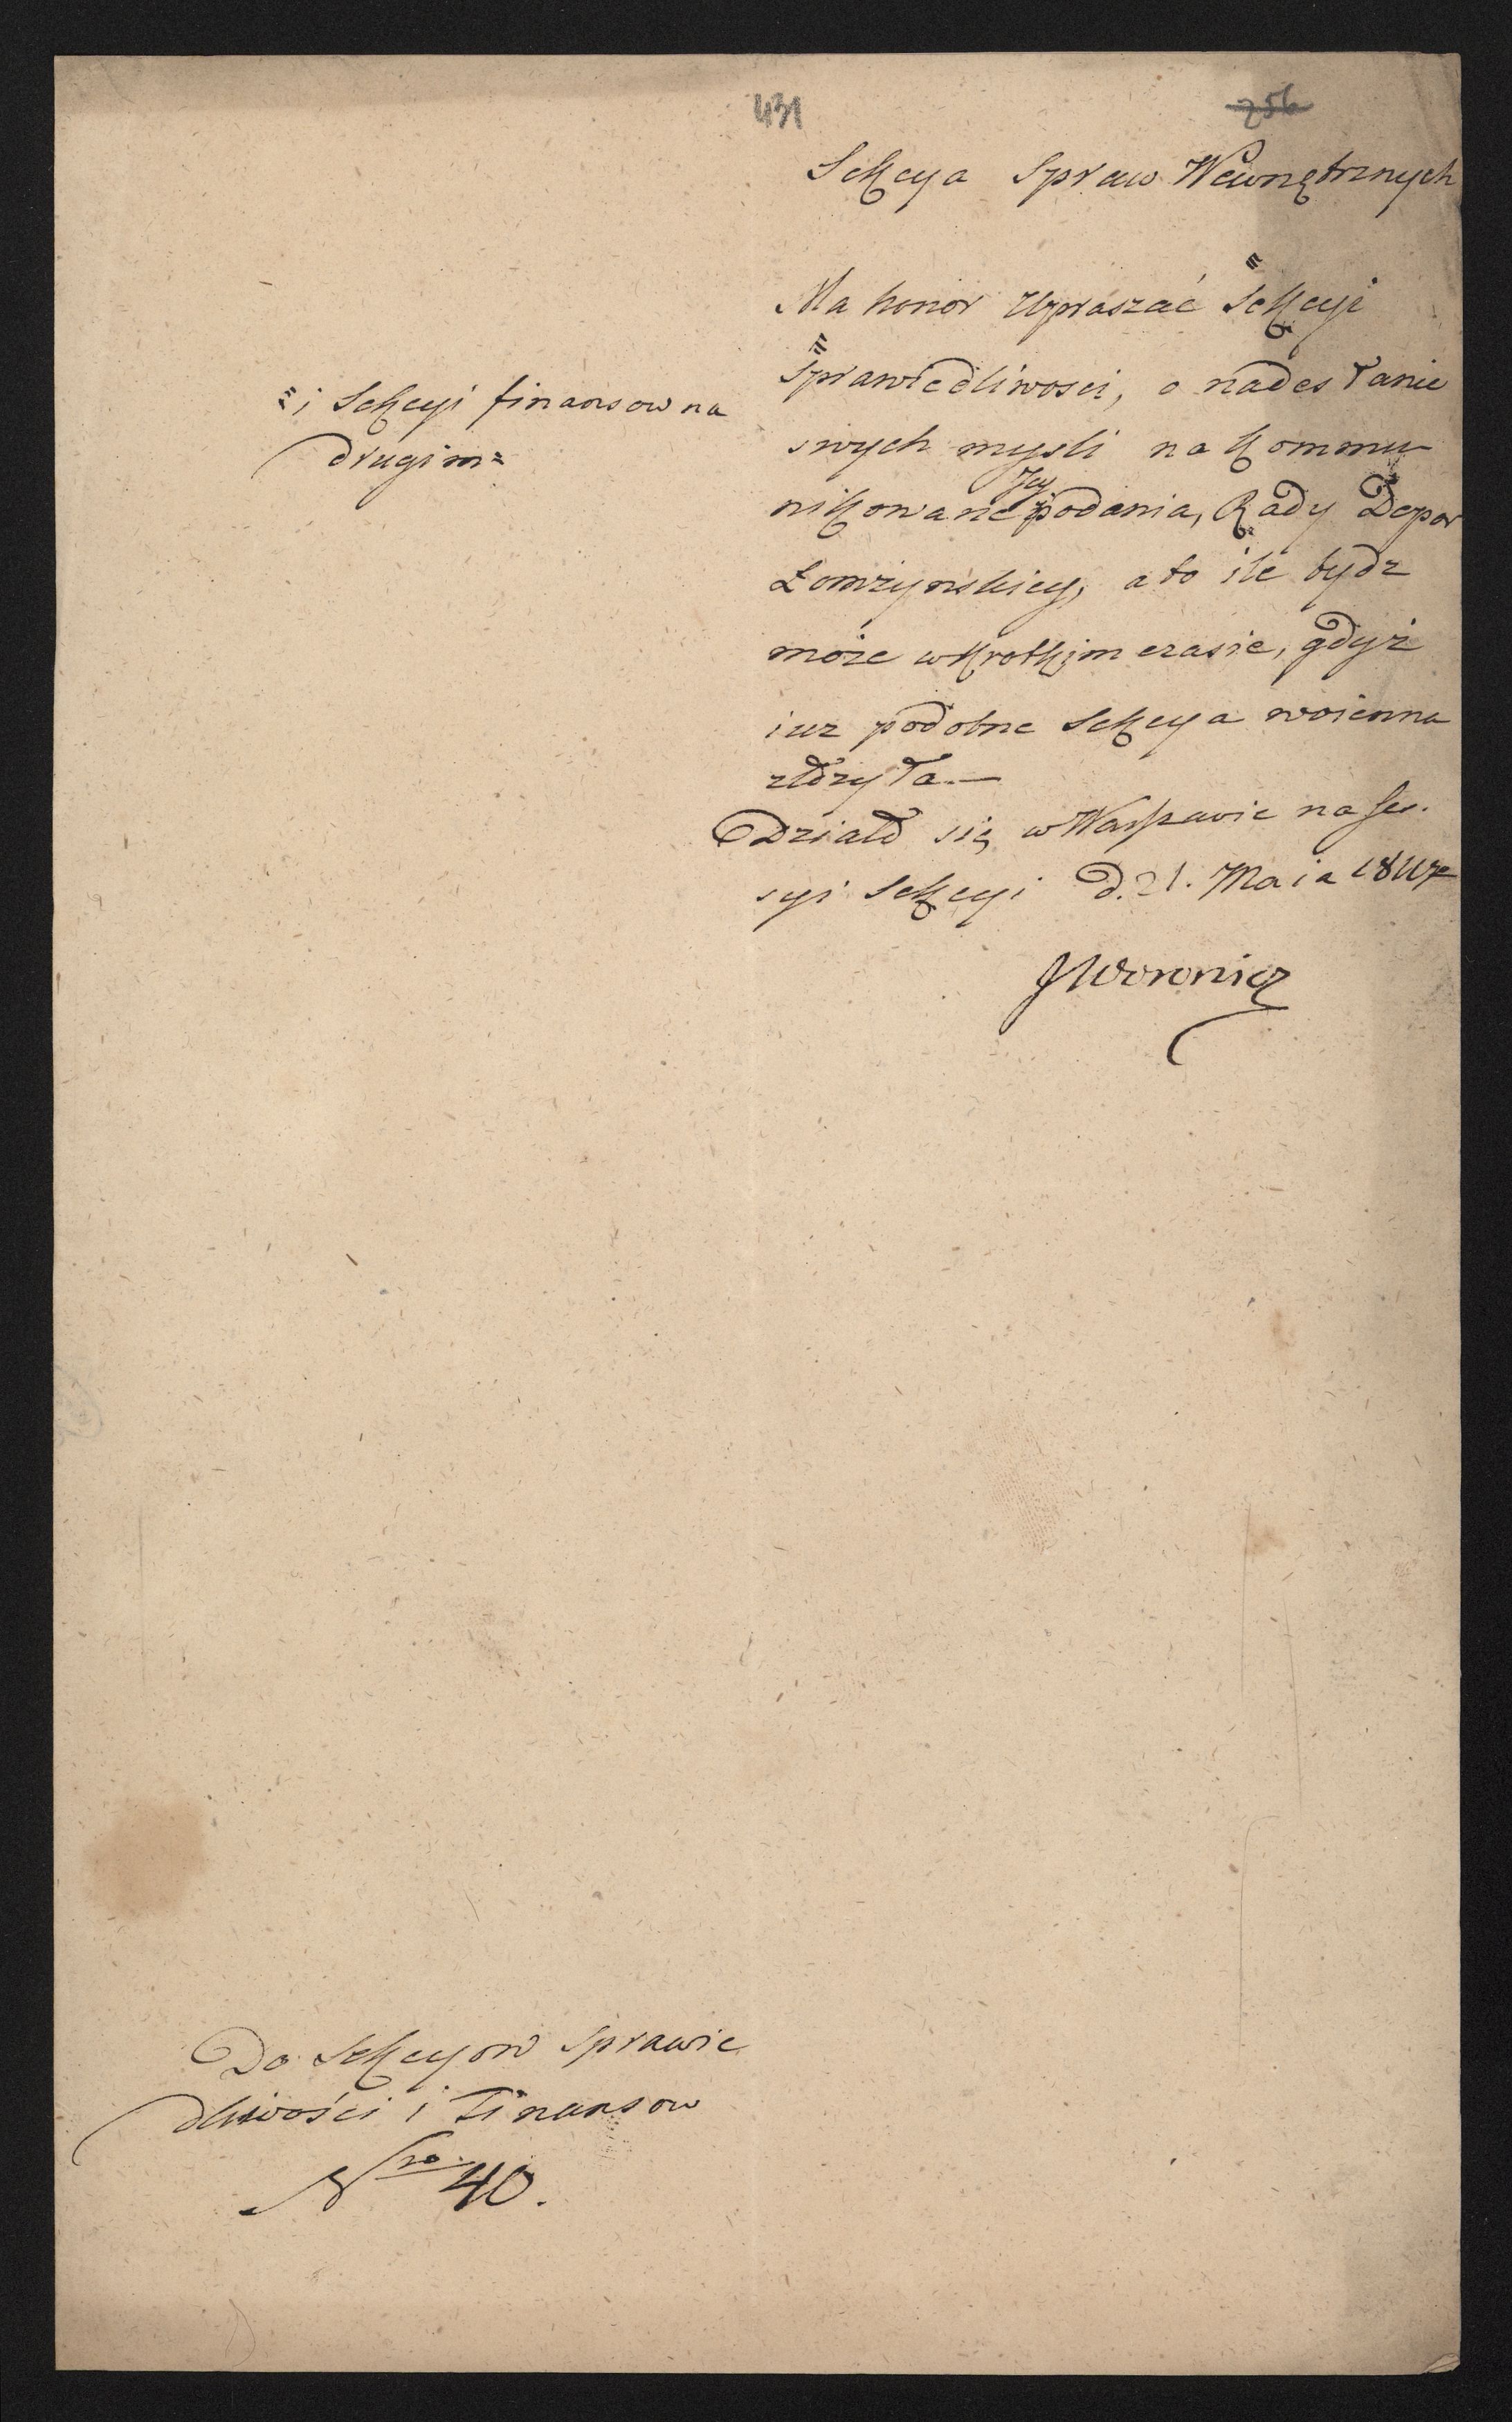 431
256
Sekcya Spraw Wewnętrznych
Ma honor upraszać Sekcyi
Sprawiedliwosci, o nadesłanie
=i Sekcyi finansow na
drugim=
swych mysli na kommu-
nikowane Jey podania, Rady Depar
Łomżynskiey, a to ile bydz
może w krotkim czasie, gdyż
iuz podobne Sekcya woienna
złożyła.—
Działo się w Warszawie na Ses.
syi Sekcyi d. 21. Maia
JWoronicz
Do Sekcyow Sprawie
dliwości i Finansow
Nro 40.